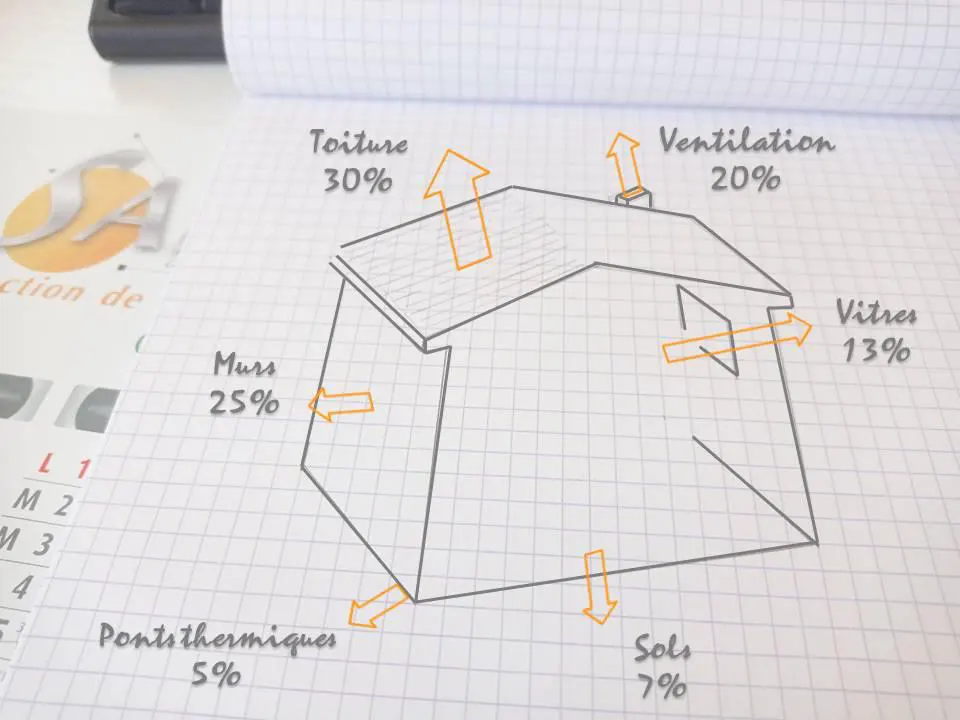 Toiture
30%
Ventilation
20%
Vitres
13%
Murs
25%
Ponts thermiques
5%
Sols
7%
SA
ction de
L 1
M 2
M 3
4
5 3